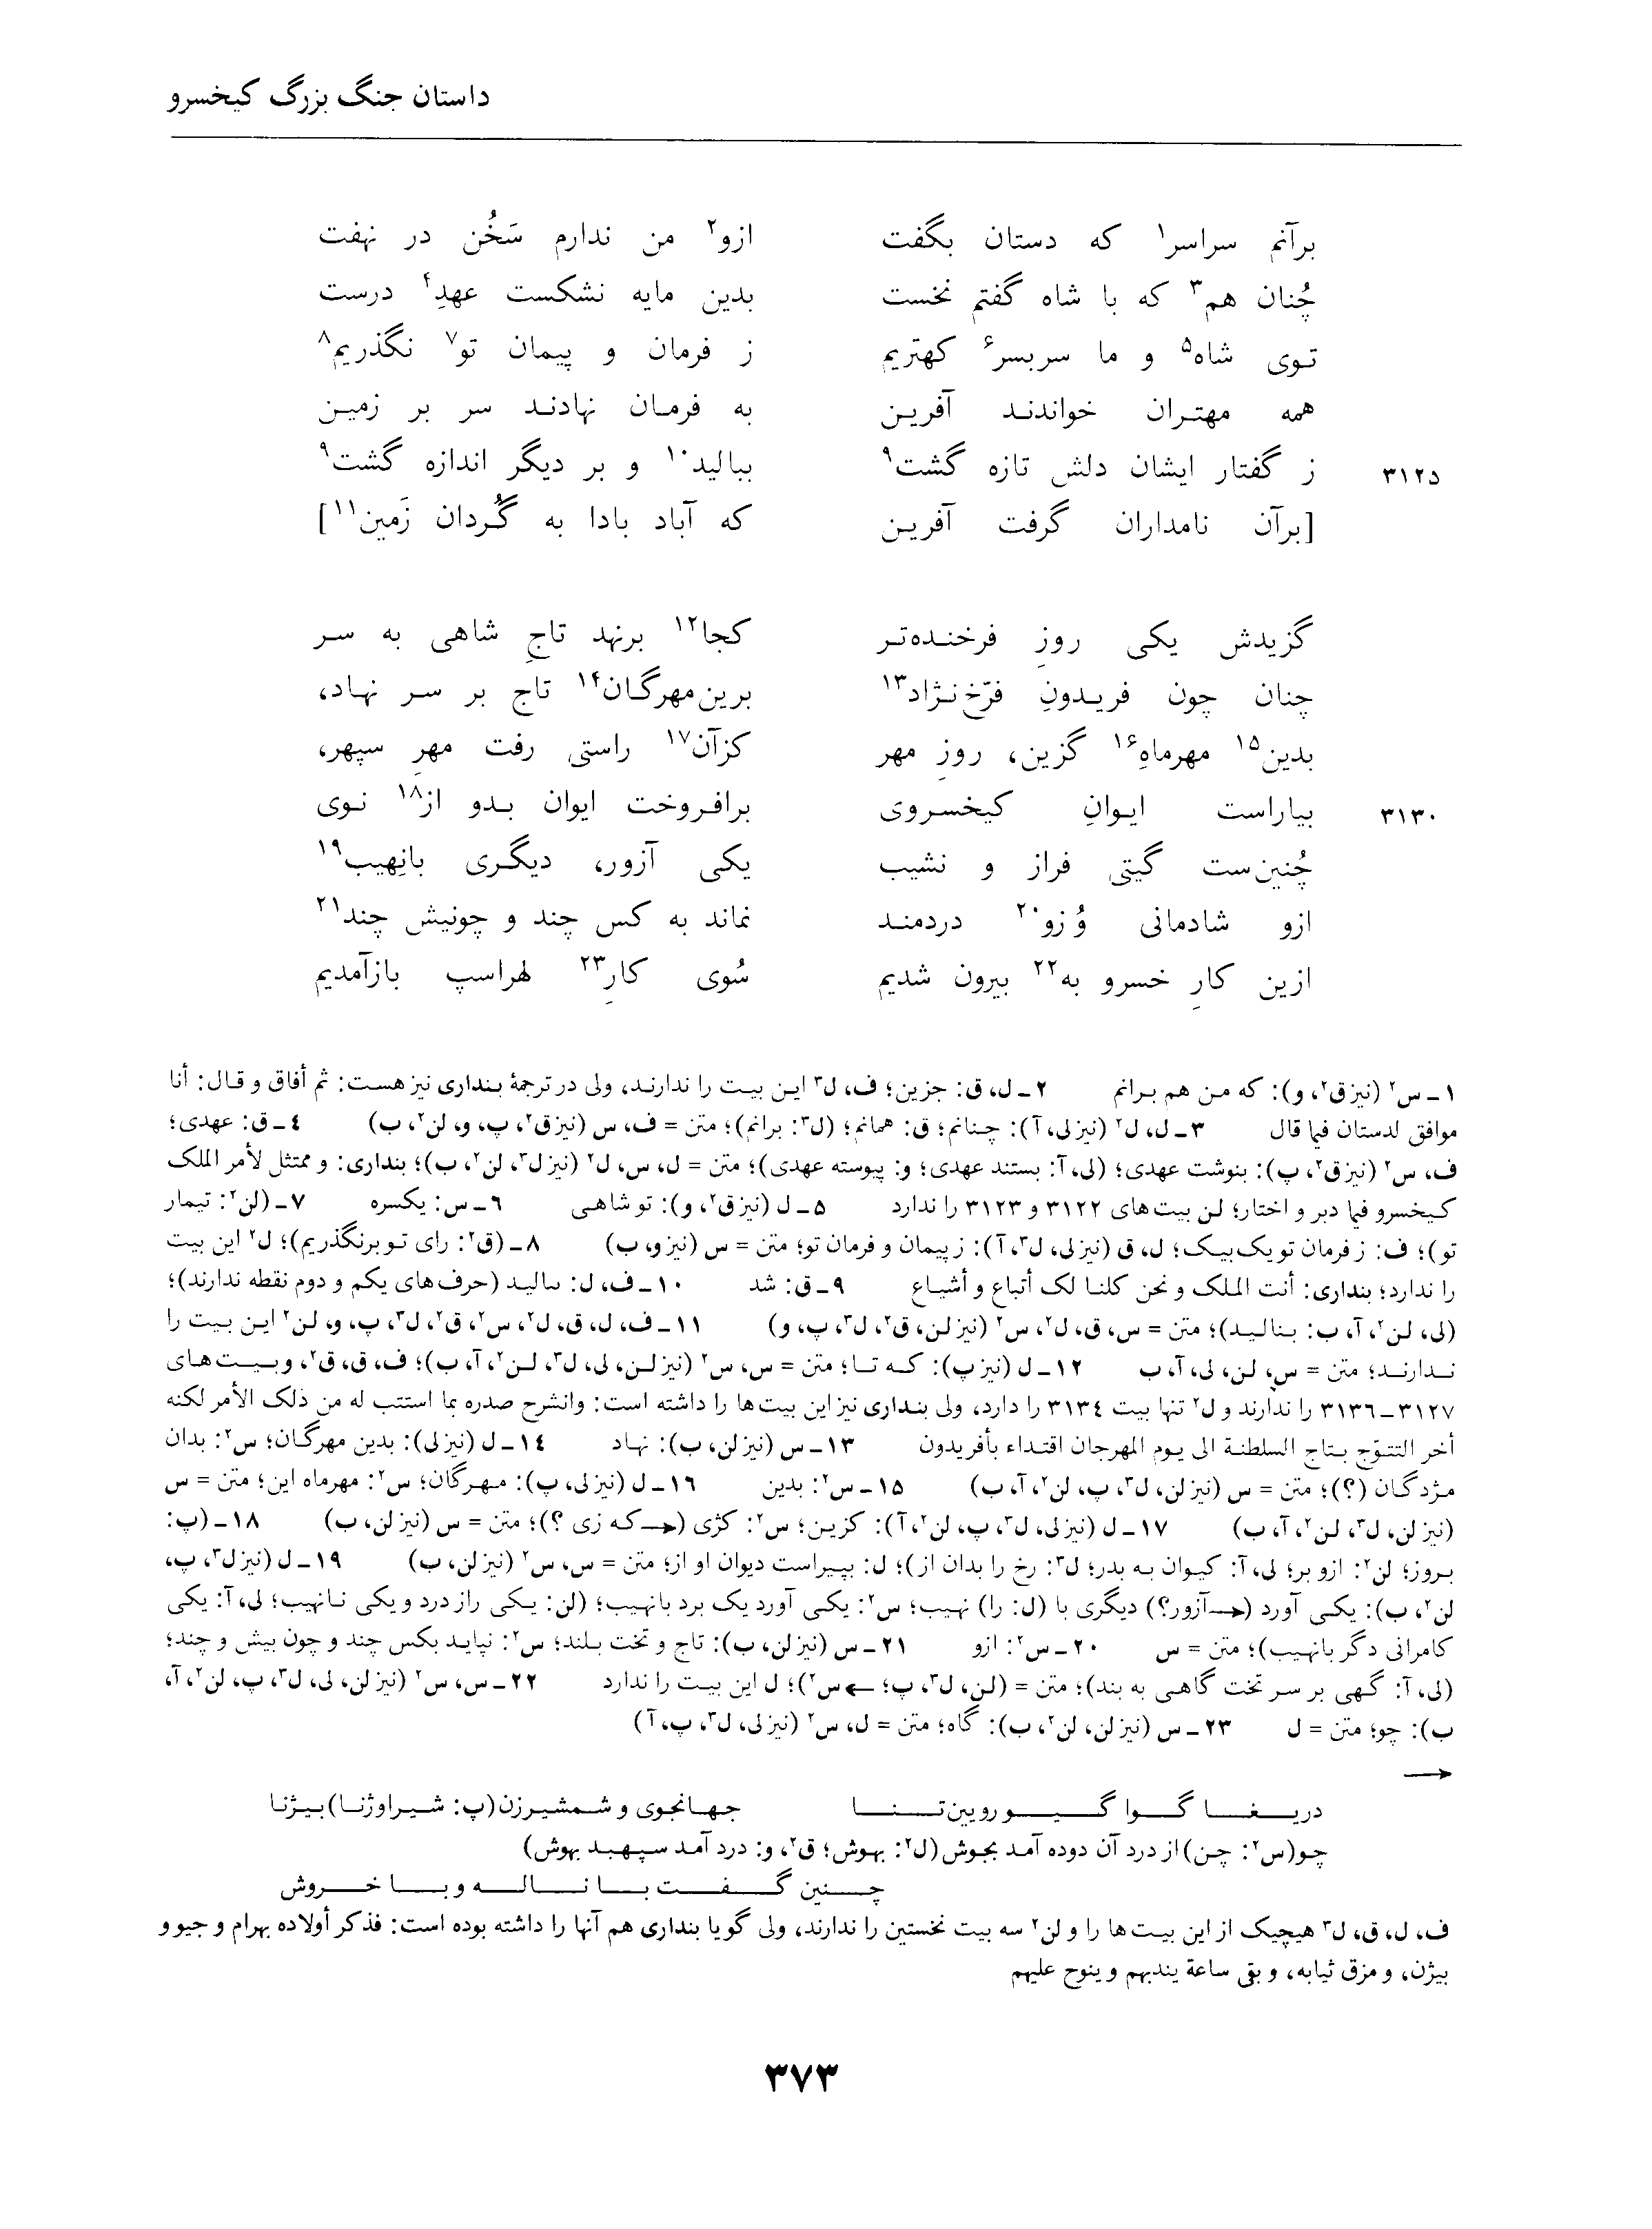 داستان جنگ بزرگ کیخسرو
برآنم سراسر۱ که دستان بگفت ازو۲ من ندارم سَخُن در نهفت
چُنان هم۳ که با شاه گفتم نخست بدین مایه نشکست عهدِ۴ درست
توی شاه۵ و ما سربسر۶ کهتریم ز فرمان و پیمان تو۷ نگذریم۸
همه مهتران خواندند آفرین به فرمان نهادند سر بر زمین
۳۱۲۵ ز گفتار ایشان دلش تازه گشت۹ ببالید۱۰ و بر دیگر اندازه گشت۹
[برآن نامداران گرفت آفرین که آباد بادا به گُردان زَمین۱۱]
گزیدش یکی روزِ فرخنده‌تر کجا۱۲ برنهد تاجِ شاهی به سر
چنان چون فریدونِ فرّخ‌نژاد۱۳ برین‌مهرگان۱۴ تاج بر سر نهاد،
بدین۱۵ مهرماهِ۱۶ گزین، روزِ مهر کزآن۱۷ راستی رفت مهرِ سپهر،
۳۱۳۰ بیاراست ایوانِ کیخسروی برافروخت ایوان بدو از۱۸ نوی
چُنین‌ست گیتی فراز و نشیب یکی آزور، دیگری بانِهیب۱۹
ازو شادمانی وُ زو۲۰ دردمند نماند به کس چند و چونیش چند۲۱
ازین کارِ خسرو به۲۲ بیرون شدیم سُوی کارِ۲۳ لهراسپ بازآمدیم
۱ـ س۲ (نیز ق۲، و): که من هم برانم ۲ـ ل، ق: جزین؛ ف، ل۳ این بیت را ندارند، ولی در ترجمهٔ بنداری نیز هست: ثم أفاق و قال: أنا
موافق لدستان فیما قال ۳ـ ل، ل۲ (نیز لی، آ): چنانم؛ ق: همانم؛ (ل۳: برانم)؛ متن = ف، س (نیز ق۲، پ، و، لن۲، ب) ٤ـ ق: عهدی؛
ف، س۲ (نیز ق۲، پ): بنوشت عهدی؛ (لی، آ: بستند عهدی؛ و: پیوسته عهدی)؛ متن = ل، س، ل۲ (نیز ل۳، لن۲، ب)؛ بنداری: و ممتثل لأمر الملک
کیخسرو فیما دبر و اختار؛ لن بیت‌های ۳۱۲۲ و ۳۱۲۳ را ندارد ۵ـ ل (نیز ق۲، و): تو شاهی ٦ـ س: یکسره ۷ـ (لن۲: تیمار
تو)؛ ف: ز فرمان تو یک‌بیک؛ ل، ق (نیز لی، ل۳، آ): ز پیمان و فرمان تو؛ متن = س (نیز و، ب) ۸ـ (ق۲: رای تو برنگذریم)؛ ل۲ این بیت
را ندارد؛ بنداری: أنت الملک و نحن کلنا لک أتباع و أشیاع ۹ـ ق: شد ۱۰ـ ف، ل: ٮٮالید (حرف‌های یکم و دوم نقطه ندارند)؛
(لی، لن۲، آ، ب: بنالید)؛ متن = س، ق، ل۲، س۲ (نیز لن، ق۲، ل۳، پ، و) ۱۱ـ ف، ل، ق، ل۲، س۲، ق۲، ل۳، پ، و، لن۲ این بیت را
ندارند؛ متن = س، لن، لی، آ، ب ۱۲ـ ل (نیز پ): که تا؛ متن = س، س۲ (نیز لن، لی، ل۳، لن۲، آ، ب)؛ ف، ق، ق۲، و بیت‌های
۳۱۲۷ـ۳۱۳٦ را ندارند و ل۲ تنها بیت ۳۱۳٤ را دارد، ولی بنداری نیز این بیت‌ها را داشته است: وانشرح صدره بما استتب له من ذلک الأمر لکنه
أخر التتوّج بتاج السلطنة الی یوم المهرجان اقتداء بأفریدون ۱۳ـ س (نیز لن، ب): نهاد ۱٤ـ ل (نیز لی): بدین مهرگان؛ س۲: بدان
مژدگان (؟)؛ متن = س (نیز لن، ل۳، پ، لن۲، آ، ب) ۱۵ـ س۲: بدین ۱٦ـ ل (نیز لی، پ): مهرگان؛ س۲: مهرماه این؛ متن = س
(نیز لن، ل۳، لن۲، آ، ب) ۱۷ـ ل (نیز لی، ل۳، پ، لن۲، آ): کزین؛ س۲: کژی (→ که زی ؟)؛ متن = س (نیز لن، ب) ۱۸ـ (پ:
بروز؛ لن۲: ازو بر؛ لی، آ: کیوان به بدر؛ ل۳: رخ را بدان از)؛ ل: بپیراست دیوان او از؛ متن = س، س۲ (نیز لن، ب) ۱۹ـ ل (نیز ل۳، پ،
لن۲، ب): یکی آورد (→ آزور؟) دیگری با (ل: را) نهیب؛ س۲: یکی آورد یک برد بانهیب؛ (لن: یکی راز درد و یکی نانهیب؛ لی، آ: یکی
کامرانی دگر بانهیب)؛ متن = س ۲۰ـ س۲: ازو ۲۱ـ س (نیز لن، ب): تاج و تخت بلند؛ س۲: نپاید بکس چند و چون بیش و چند؛
(لی، آ: گهی بر سر تخت گاهی به بند)؛ متن = (لن، ل۳، پ؛ ← س۲)؛ ل این بیت را ندارد ۲۲ـ س، س۲ (نیز لن، لی، ل۳، پ، لن۲، آ،
ب): چو؛ متن = ل ۲۳ـ س (نیز لن، لن۲، ب): گاه؛ متن = ل، س۲ (نیز لی، ل۳، پ، آ)
→
دریغا گوا گیو رویین‌تنا جهانجوی و شمشیرزن (پ: شیراوژنا) بیژنا
چو (س۲: چن) از درد آن دوده آمد بجوش (ل۲: بهوش؛ ق۲، و: درد آمد سپهبد بهوش)
چنین گفت با ناله و با خروش
ف، ل، ق، ل۳ هیچیک از این بیت‌ها را و لن۲ سه بیت نخستین را ندارند، ولی گویا بنداری هم آنها را داشته بوده است: فذکر أولاده بهرام و جیو و
بیژن، و مزق ثیابه، و بقی ساعة یندبهم و ینوح علیهم
۳۷۳